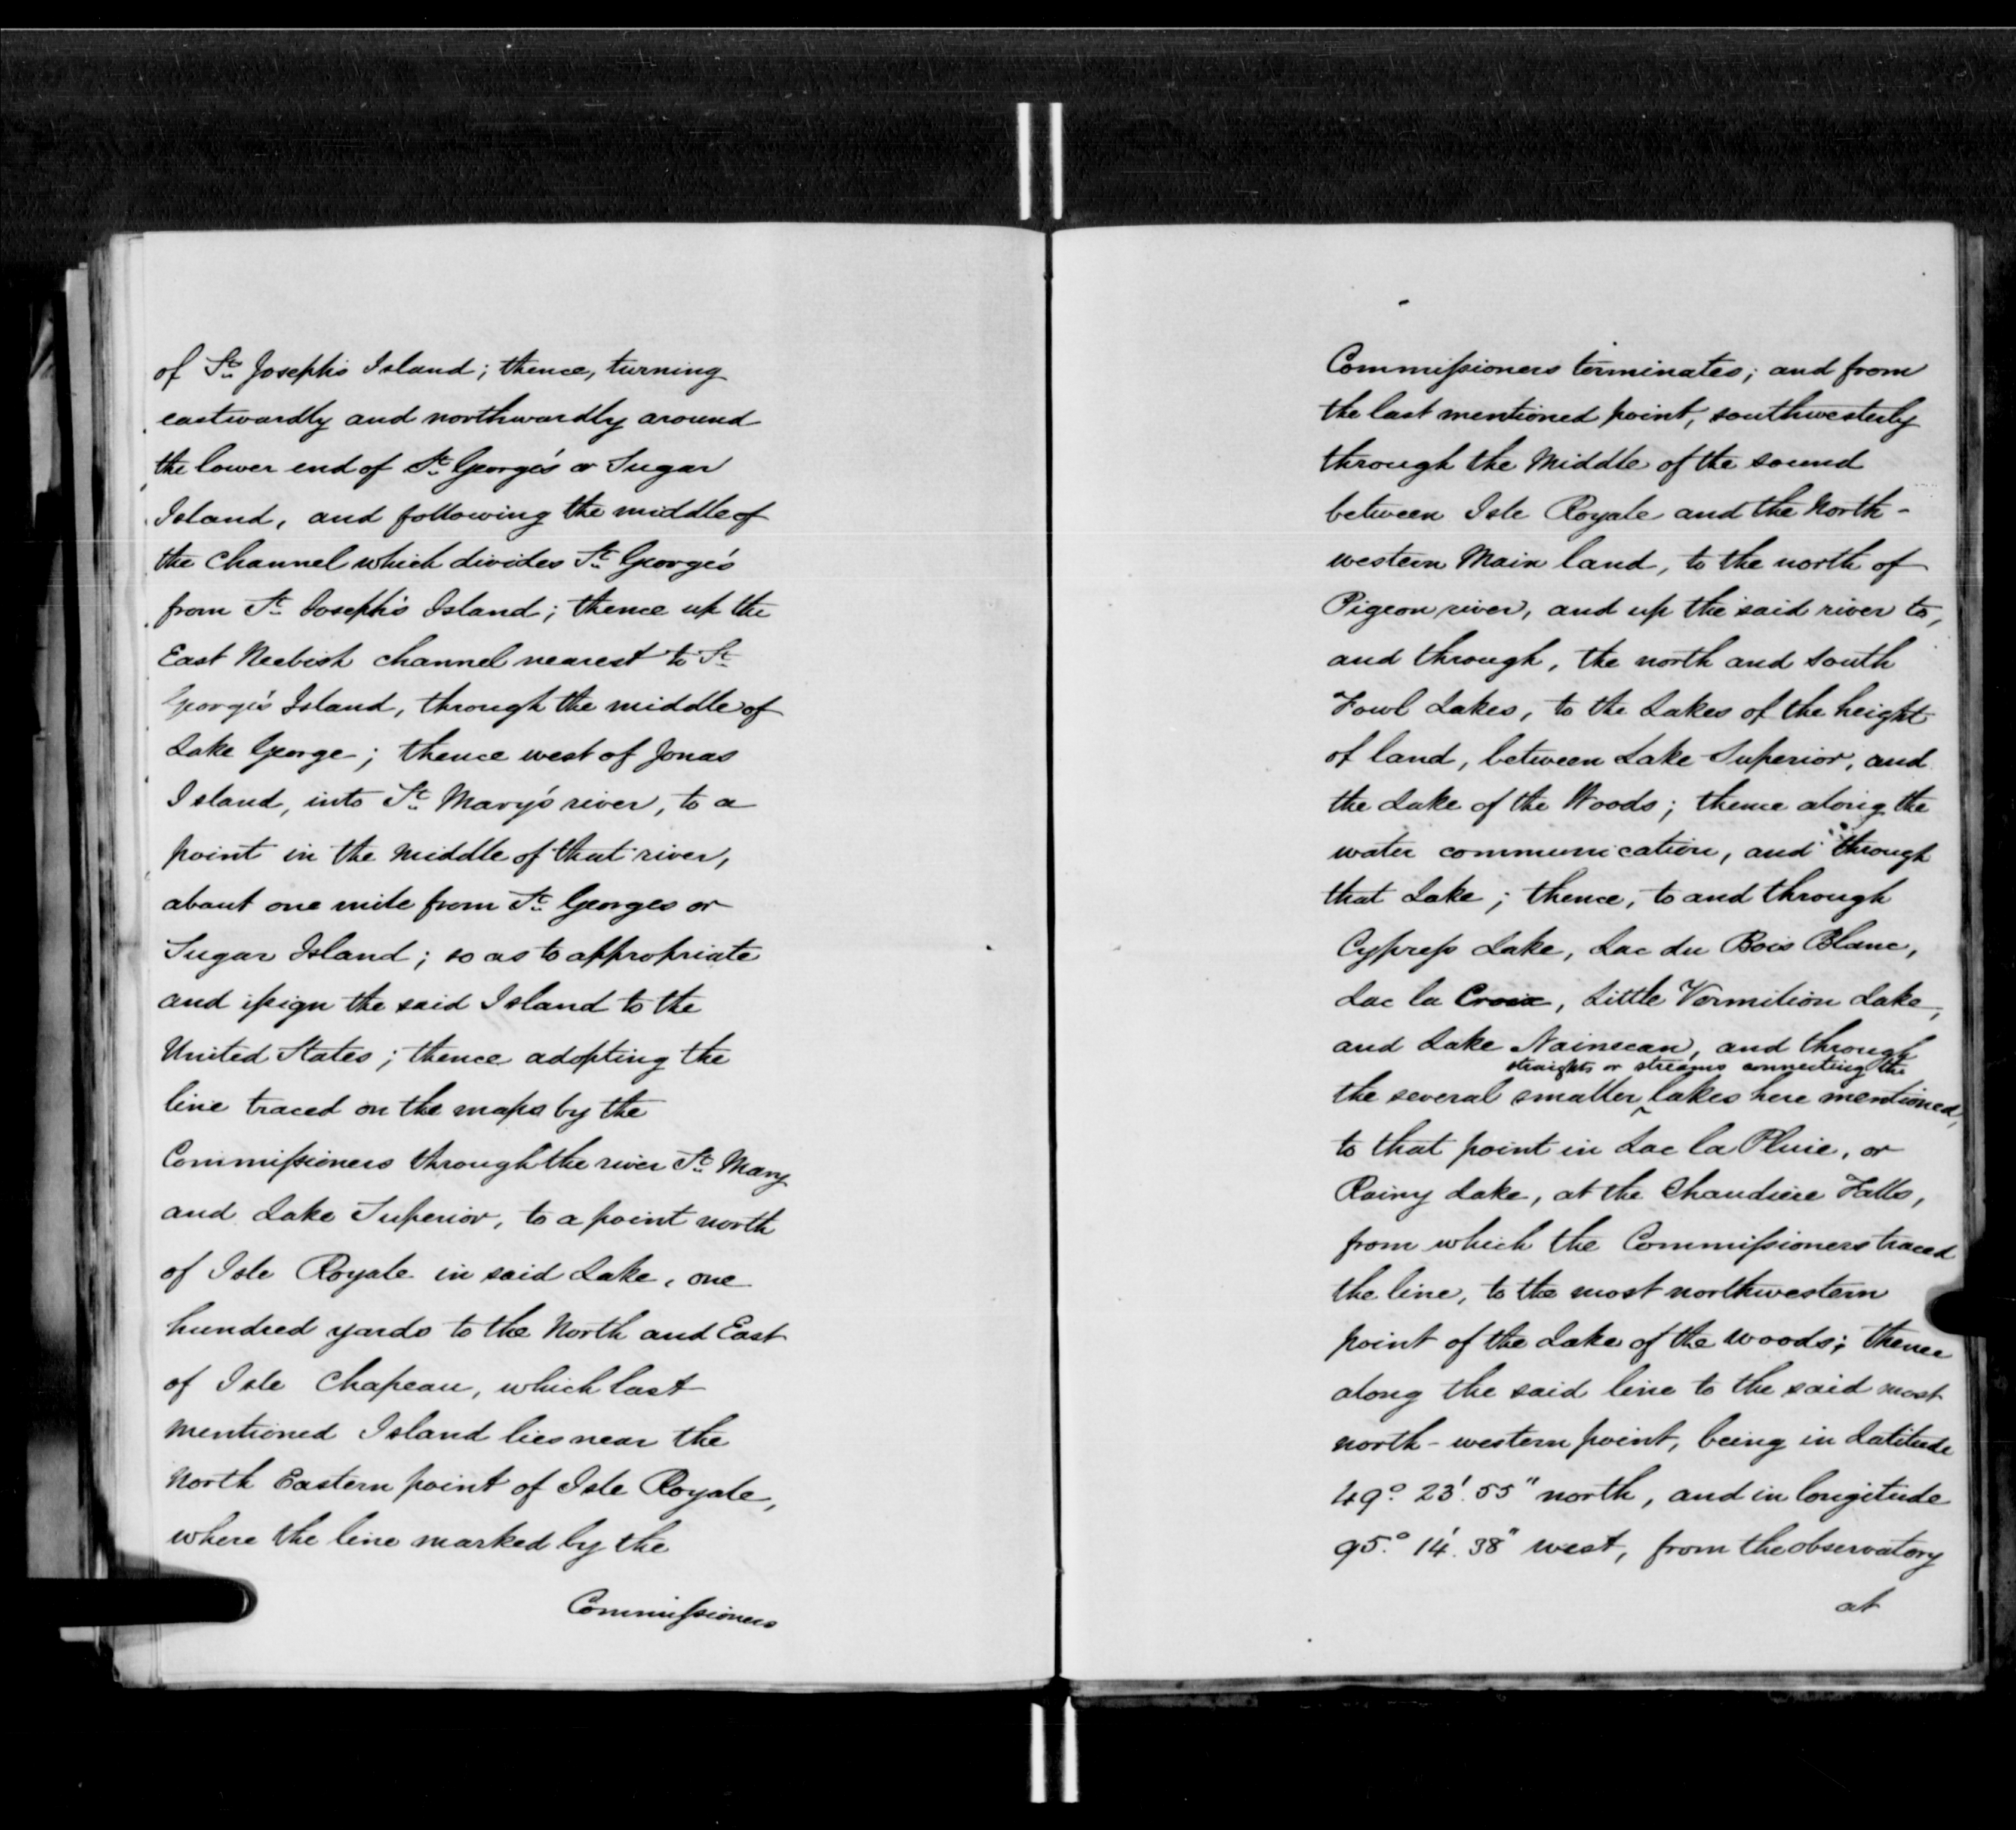 of St. Joseph's Island; thence, turning
eastwardly and northwardly around
the lower end of St. George's or Sugar
Island, and following the middle of
the channel which divides St. George's
from St. Joseph's Island; thence up the
East Neebish channel nearest to St.
George's Island, through the middle of
Lake George; thence west of Jonas
Island, into St. Mary's river, to a
point in the middle of that river,
about one mile from St. Georges or
Sugar Island; so as to appropriate
and assign the said Island to the
United States; thence adopting the
line traced on the maps by the
Commissioners through the river St. Mary
and Lake Superior, to a point north
of Isle Royale in said Lake, one
hundred yards to the North and East
of Isle Chapeau, which last
mentioned Island lies near the
North Eastern point of Isle Royale,
where the line marked by the
Commissioners
Commissioners terminates; and from
the last mentioned point, southwesterly
through the Middle of the sound
between Isle Royale and the North-
western Main land, to the north of
Pigeon river, and up the said river to,
and through, the north and south
Fowl Lakes, to the Lakes of the height
of land, between Lake Superior, and
the Lake of the Woods; thence along the
water communication, and through
that Lake; thence, to and through
Cypress Lake, Lac du Bois Blanc,
Lac la Croix, Little Vermilion Lake,
and Lake Namecan, and through
straights or streams connecting the
the several smaller ‸ lakes here mentioned,
to that point in Lac la Pluie, or
Rainy Lake, at the Chaudiere Falls,
from which the Commissioners traced
the line, to the most northwestern
point of the Lake of the woods; thence
along the said line to the said most
north-western point, being in Latitude
49° 23'. 55" north, and in longitude
95.° 14'. 38" west, from the observatory
at